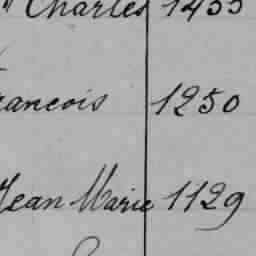 " Charles 1455
rancois 1250
Jean Marie 1129